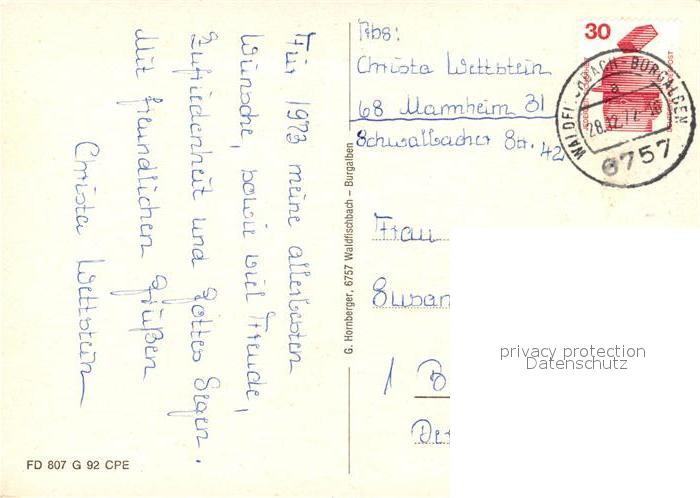 Für 1973 meine allerbesten
Wünsche, sowie viel Freude,
Zufriedenheit und Gottes Segen.
Mit freundlichen Grüßen
Christa Wettstein
FD 807 G 92 CPE
G. Hornberger, 6757 Waldfischbach – Burgalben
Abs:
Christa Wettstein
68 Mannheim 31
Schwalbacher Str. 42
30
WALDFISCHBACH-BURGALBEN
a
28.12.72
6757
Frau
Susan
1 B
privacy protection
Datenschutz